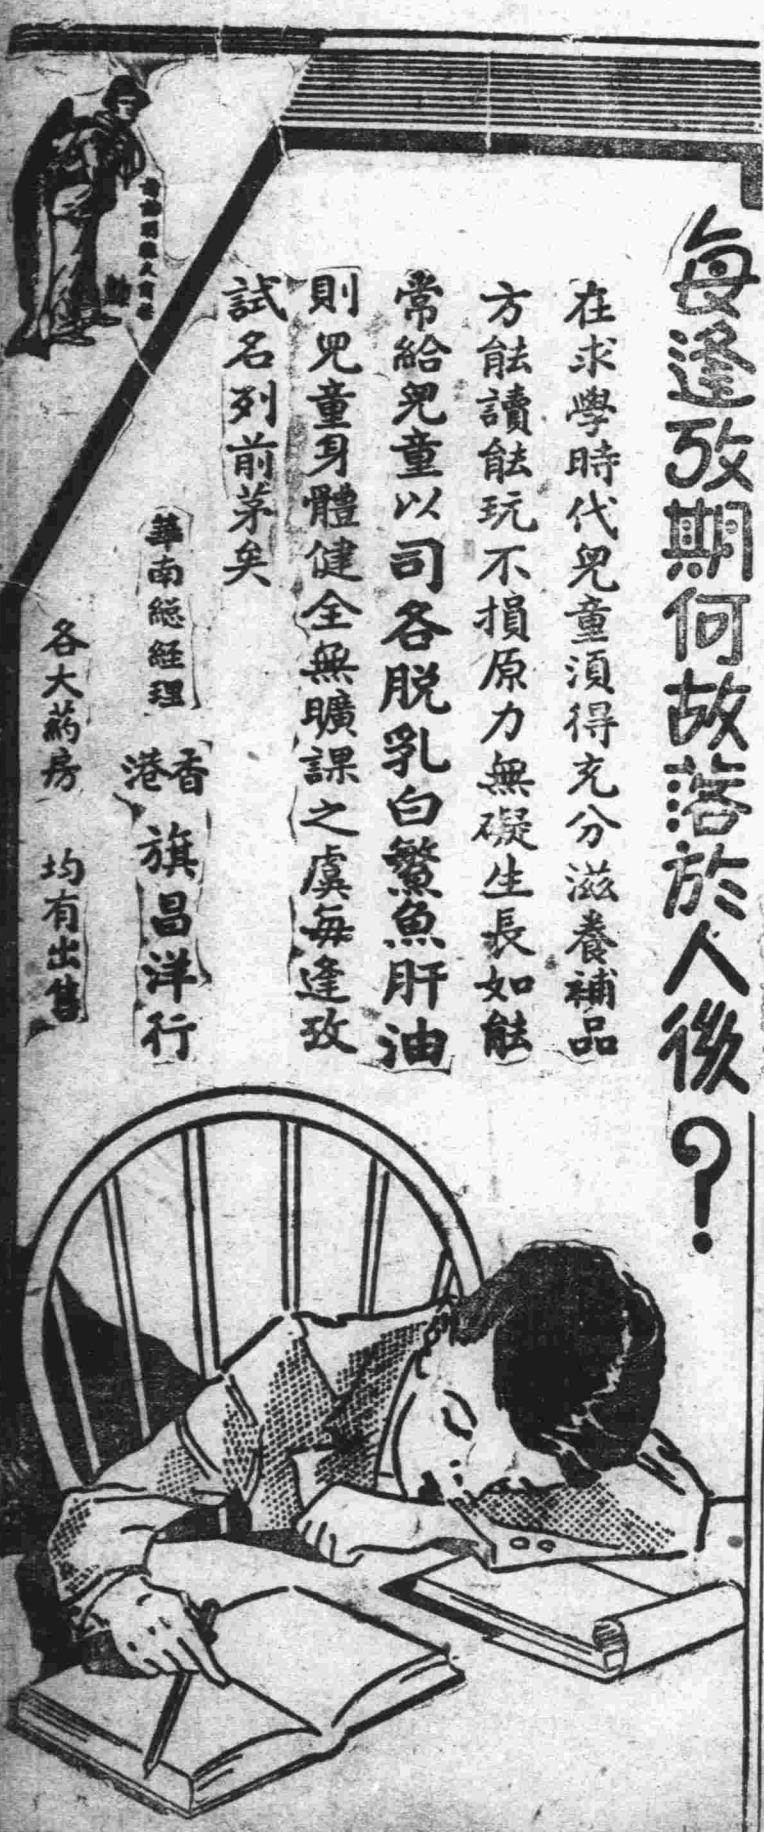 每逢攷期何故落於人後？
在求學時代兒童須得充分滋養補品
方能讀能玩不損原力無礙生長如能
常給兒童以司各脱乳白鰵魚肝油
則兒童身體健全無曠課之虞每逢攷
試名列前茅矣
華南總經理
香港
旗昌洋行
各大葯房
均有出售